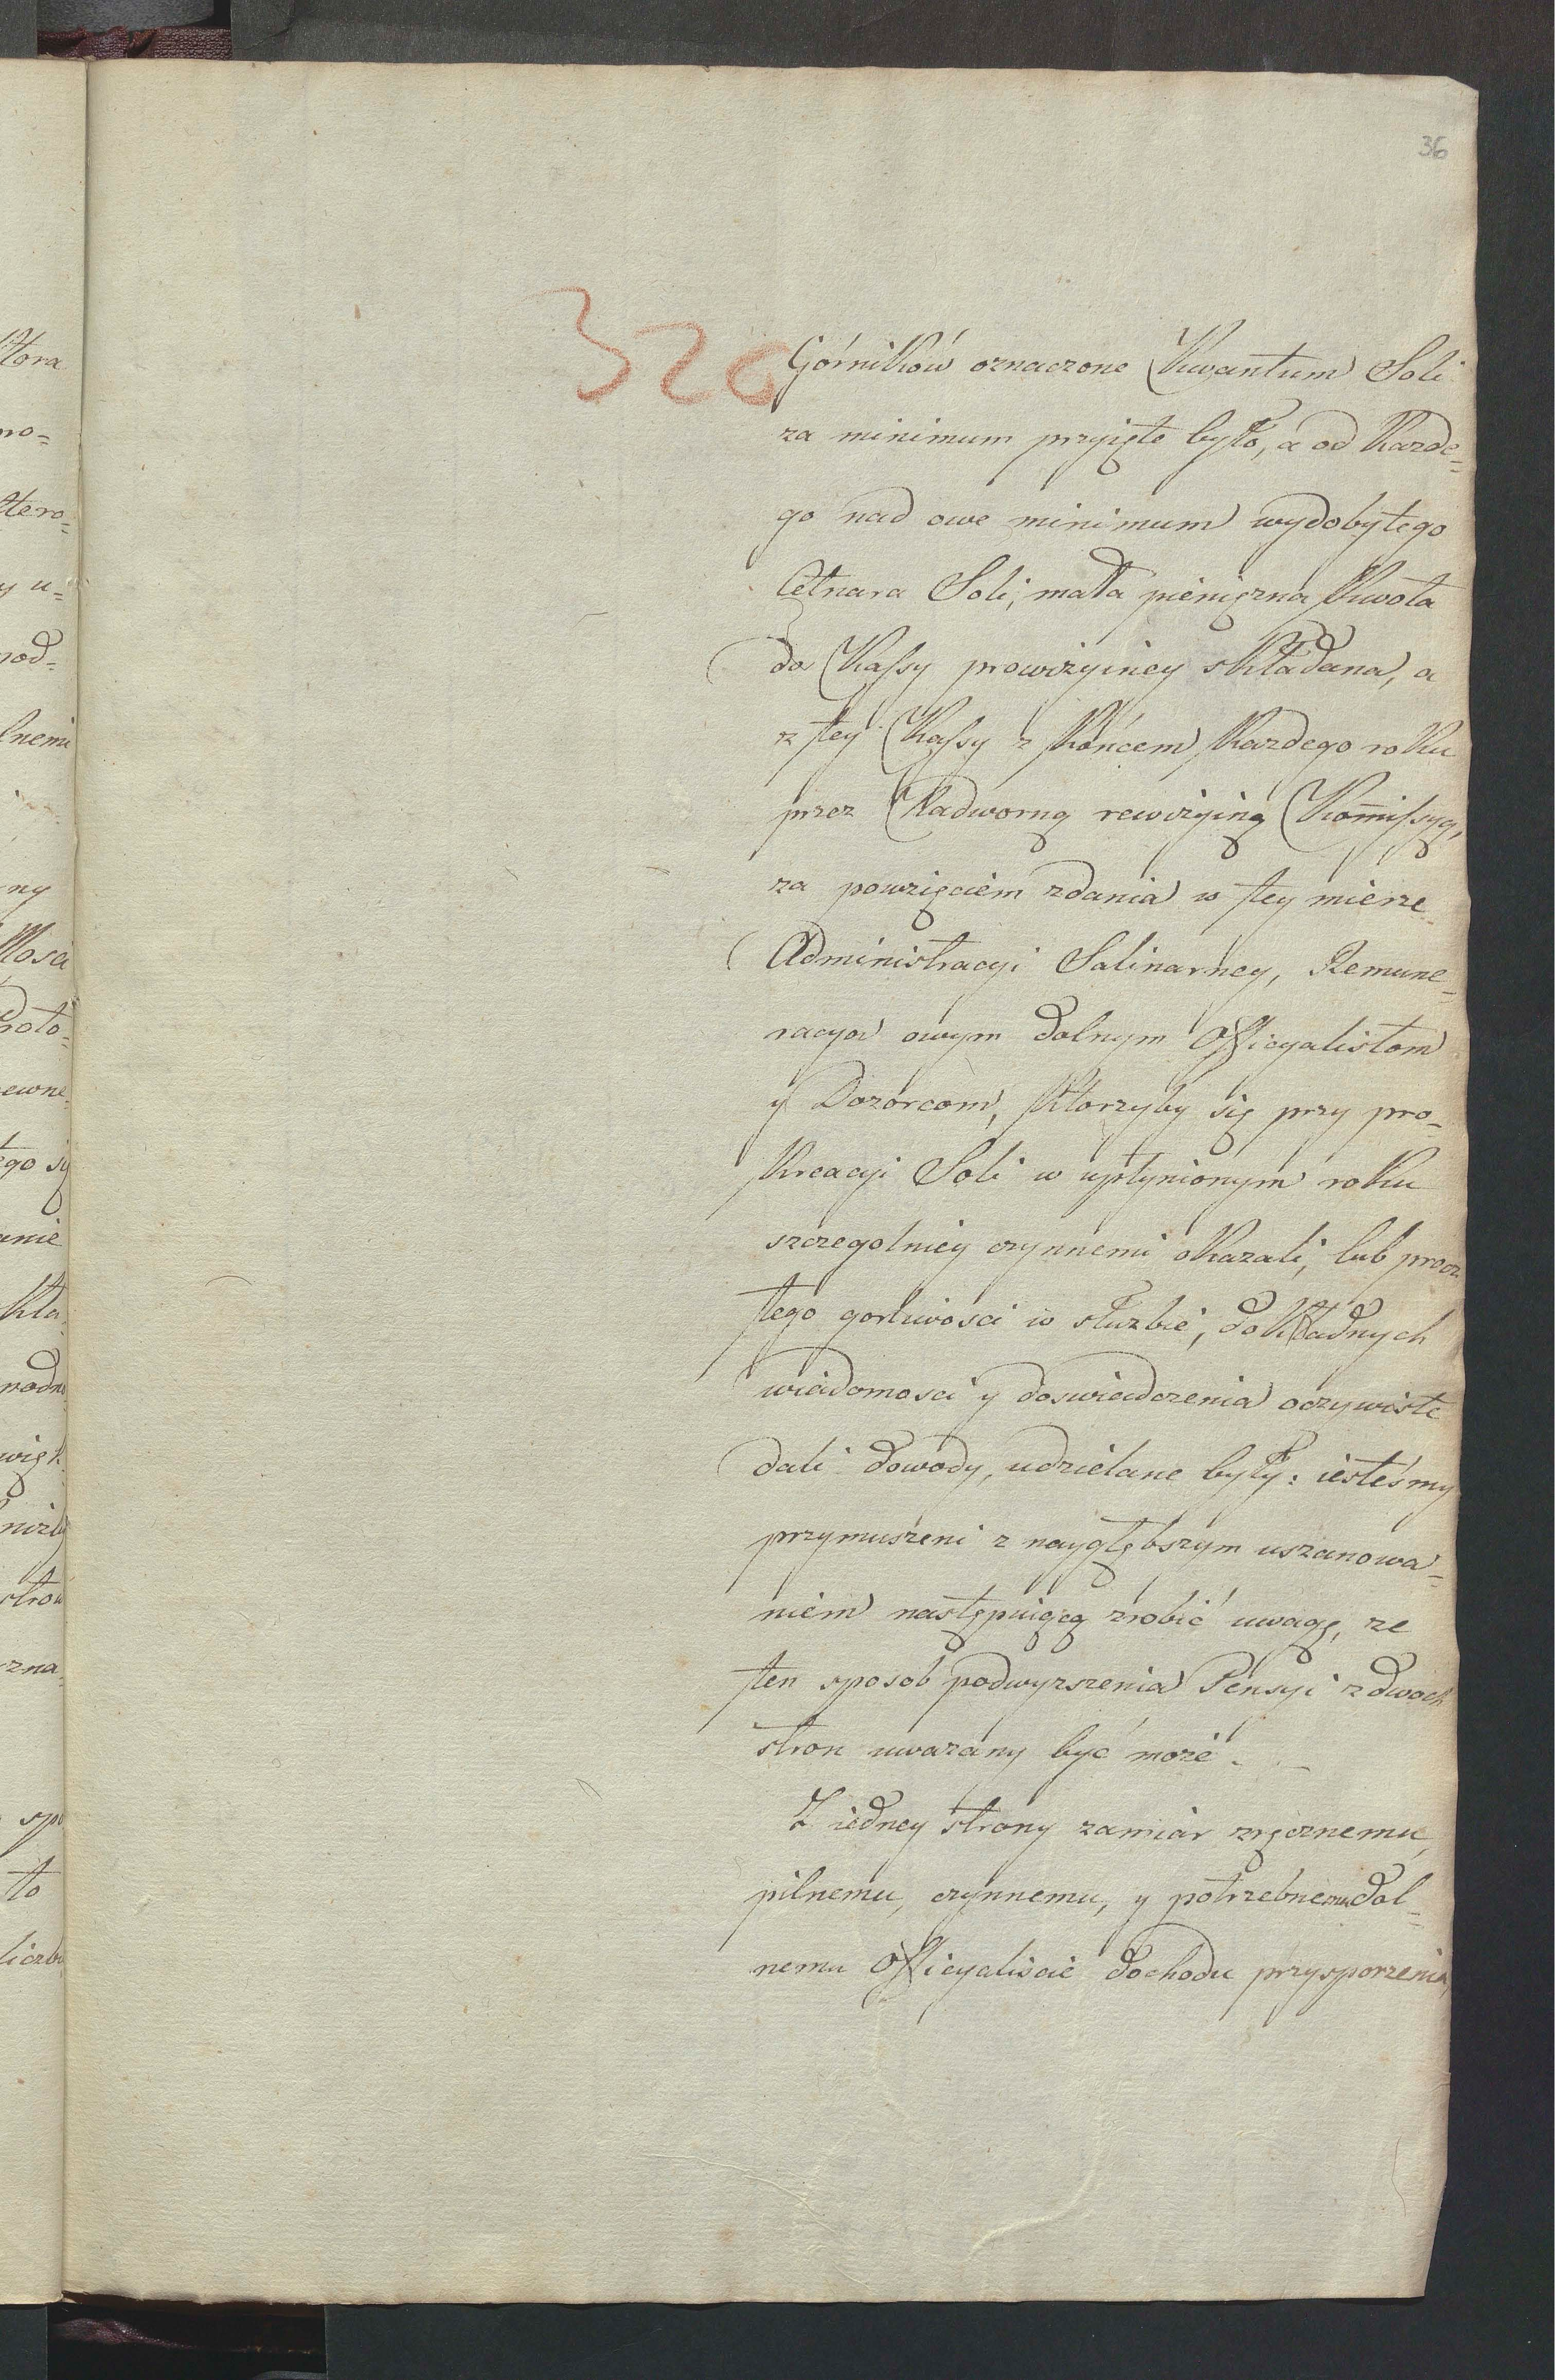 36
320
Górników oznaczone Kwantum Soli
za minimum przyięte było, a od Kazde=
go nad owe minimum wydobytego
Cetnara Soli, mała pieniężna Kwota
do Kassy prowizyiney składana, a
z tey Kassy z Końcem Kazdego roku
przez Nadworną rewizyiną Kommissyą,
za powzięciem zdania w tey mierze
Administracyi Salinarney, Remune=
racya owym dolnym Officyalistom
y Dozorcom, Ktorzyby się przy pro=
kreacyi Soli w upłynionym roku
szczegolniey czynnemi okazali, lub procz
tego gorliwosci w służbie, dokładnych
wiadomosci y doswiadczenia oczywiste
dali dowody, udzielane były: iesteśmy
przymuszeni z naygłębszym uszanowa=
niem następuiącą zrobić uwagę, ze
ten sposob podwyzszenia Pensyi z dwoch
stron uwazany być może.
Z iedney strony zamiar zręcznemu,
pilnemu, czynnemu, y potrzebnemu dol=
nemu Officyaliscie dochodu przysporzenia,